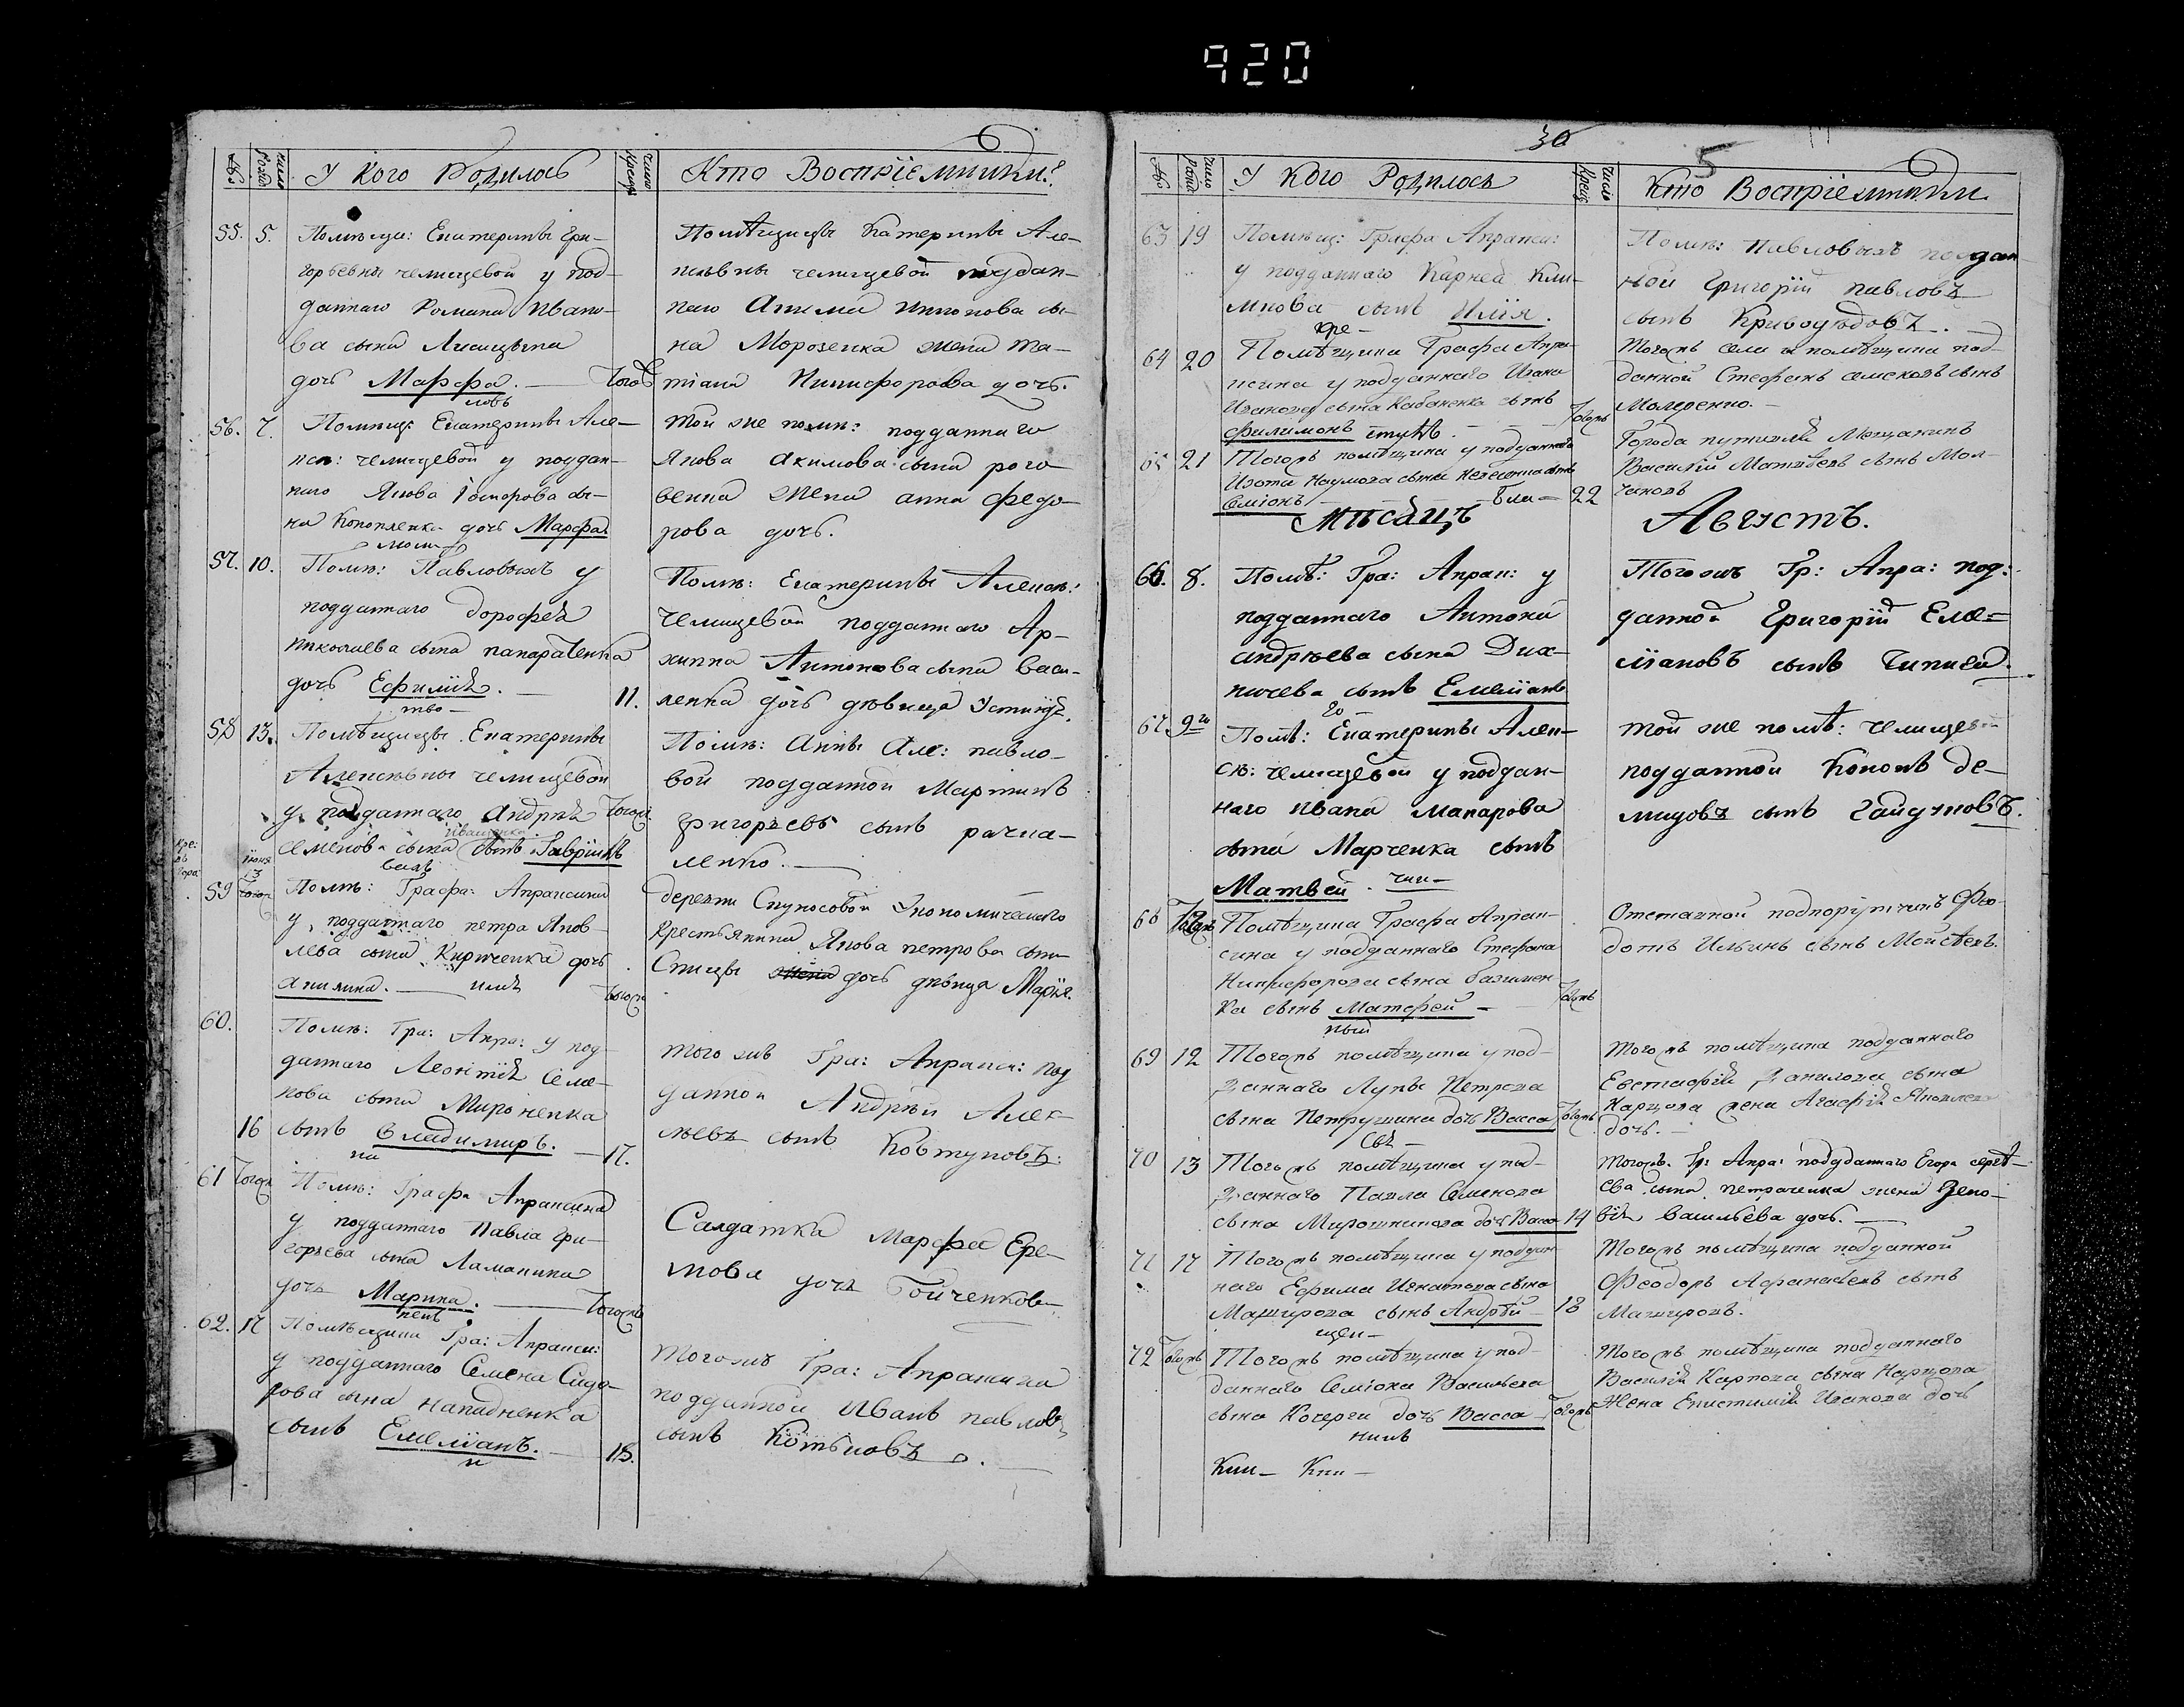 920
У кого Родилось
Кто Воспрiемники
55. 5. Помѣщи: Екатерины Гри-
горьевны челищевой у под-
даннаго Романа Ивано-
ва сына Лисицына
дочь Марфа. — Тогожъ
Помѣщицы Катерины Але-
ксѣвны челищевой поддан-
наго Акима
на Морозенка жена та-
тiана Никифорова дочь.
56. 7. Помѣщ: Екатерины Але-
ксе: челищевой у поддан-
наго Якова сы-
на Конопленка дочь Марфа.
той же помѣ: подданнаго
Якова Акимова сына рого
венка жена анна федо-
рова дочь.
57. 10. Помѣ: Павловыхъ у
подданнаго дорофея
николаева сына
дочь Ефимiя. —
11.
Помѣ: Екатерины Алексѣ:
челищевой подданнаго Ар-
хиппа Антонова сына васи-
ленка дочь дѣвица Устинiя.
58 13. Помѣщицы Екатерины
Алексѣвны челищевой
у подданнаго Андрея Тогожъ
семенова сына Иващенка сынъ Гаврiилъ
Помѣ: Анны Але: павло-
вой подданной Мартинъ
Григорьевъ сынъ
ленко. —
59 Iюня 13
Помѣ: Графа: Апраксина
у подданнаго петра Яков-
лева сына Кириченка дочь
акилина. —
Тогожъ
деревни Спукосовой Экономическаго
крестьянина Якова петрова сына
Спицы дочь дѣвица Марiя.
60.
Помѣ: Гра: Апра: у под-
даннаго Леонтiя Семе-
нова сына Мироненка
16 сынъ владимиръ. — 17.
того жъ Гра: Апракси: под
данной Андрѣй Алек-
сѣевъ сынъ Ковтуновъ:
61 Тогожъ Помѣ: Графа Апраксина
у подданнаго Павла Гри-
горьева сына Ламакина
дочь Марина. — Тогожъ
Салдатка Марфа Ере-
мова дочь Гойченкова
62. 17 Помѣщика Гра: Апракси:
у подданнаго Семена Сидо-
рова сына
сынъ Емелiанъ. — 18.
Тогожъ Гра: Апраксина
подданной Иванъ павловъ
сынъ Котыковъ.
30
5
У кого Родилось
Кто Воспрiемники
63 19 Помѣщ: Графа Апракси:
у подданнаго Карнея Кли-
мкова сынъ Илiя.
Помѣ: Павловыхъ поддан
ной Григорiй павловъ
сынъ Криводѣдовъ. —
64 20 Помѣщика Графа Апра-
ксина у подданнаго Ивана
Иванова сына Кабаненка сынъ
Филимонъ — Тогожъ
Тогожъ села и помѣщика под-
данной Стефанъ сынъ
Моляренко. —
65 21 Тогожъ помѣщика у подданнаго
Изота Наумова сына сынъ
Семiонъ 22
Города путивля Мещанинъ
Василiй Матвѣевъ сынъ Мол-
чановъ
Мѣсяцъ Августъ.
66. 8. Помѣ: Гра: Апрак: у
подданнаго Антона
андрѣева сына Дих-
ничева сынъ Емелiанъ
Тогожъ Гр: Апра: под:
данной Григорiй Еме-
лiановъ сынъ Чипига.
67. 9го Помѣ: Екатерины Алек-
сѣ: челищевой у поддан-
наго Ивана макарова
сына Марченка сынъ
Матвей.
той же помѣ: челищев
подданной Кононъ де-
мидовъ сынъ Гайдуковъ.
68 Тогожъ Помѣщика Графа Апрак-
сина у подданнаго Стефана
Никифорова сына
ка сынъ Матфей — Тогожъ
Отставной подпорутчикъ Фео-
дотъ Ильинъ сынъ Мойсѣевъ.
69 12 Тогожъ помѣщика у под-
даннаго Лупы Петрова
сына Петрушина дочь Васса Тогожъ
Тогожъ помѣщика подданнаго
Евстафiй Данилова сына
Карцова жена Агафiя Яковлева
дочь. —
70 13 Тогожъ помѣщика у под-
даннаго Павла Семенова
сына Мирошникова дочь Васса 14
Тогожъ Гр: Апра: подданнаго Егора сергѣ-
ева сына петраченка жена Зено-
вiя васильева дочь. —
71 17 Тогожъ помѣщика у поддан
наго Ефима Игнатова сына
Машурова сынъ Андрѣй — 18
Тогожъ помѣщика подданной
Феодоръ Афанасьевъ сынъ
Машуровъ.
72 Тогожъ Тогожъ помѣщика у под-
даннаго Семiона Васильева
сына Кочерги дочь Васса — Тогожъ
Тогожъ помѣщика подданнаго
Василiя Карпова сына Карцова
Жена Епистимiя Иванова дочь